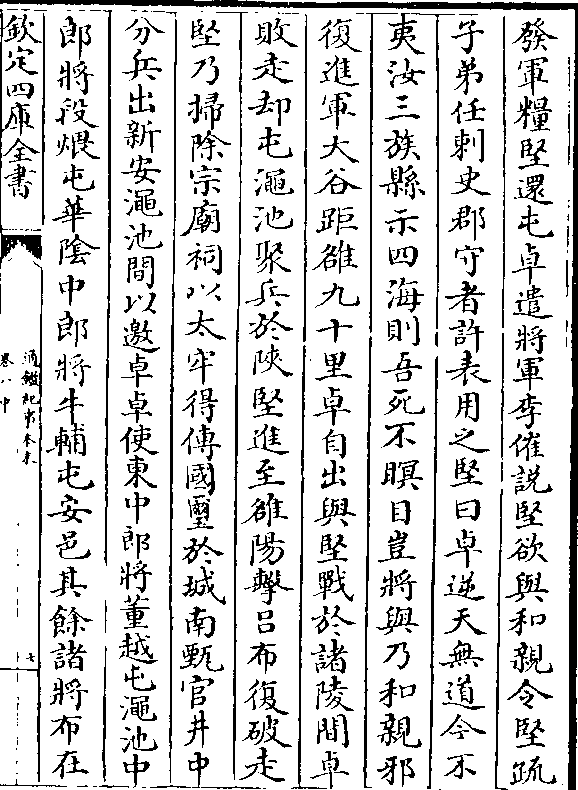 發軍糧堅還屯卓遣將軍李傕説堅欲與和親令堅疏
子弟任刺史郡守者許表用之堅曰卓逆天無道今不
夷汝三族縣示四海則吾死不瞑目豈將與乃和親邪
復進軍大谷距雒九十里卓自出與堅戰於諸陵間卓
敗走却屯澠池聚兵於陜堅進至雒陽擊吕布復破走
堅乃掃除宗廟祠以太牢得傳國璽於城南甄官井中
分兵出新安澠池間以邀卓卓使東中郎將董越屯澠池中
郎將段煨屯華陰中郎將牛輔屯安邑其餘諸將布在
欽定四庫全書
通鑑紀事本末
卷八中
七